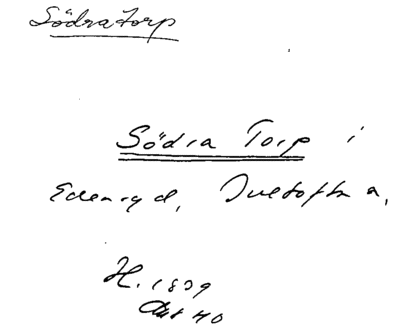 Södra Torp
Södra Torp i
Edenryd, Ivetofta,
H. 1839
40